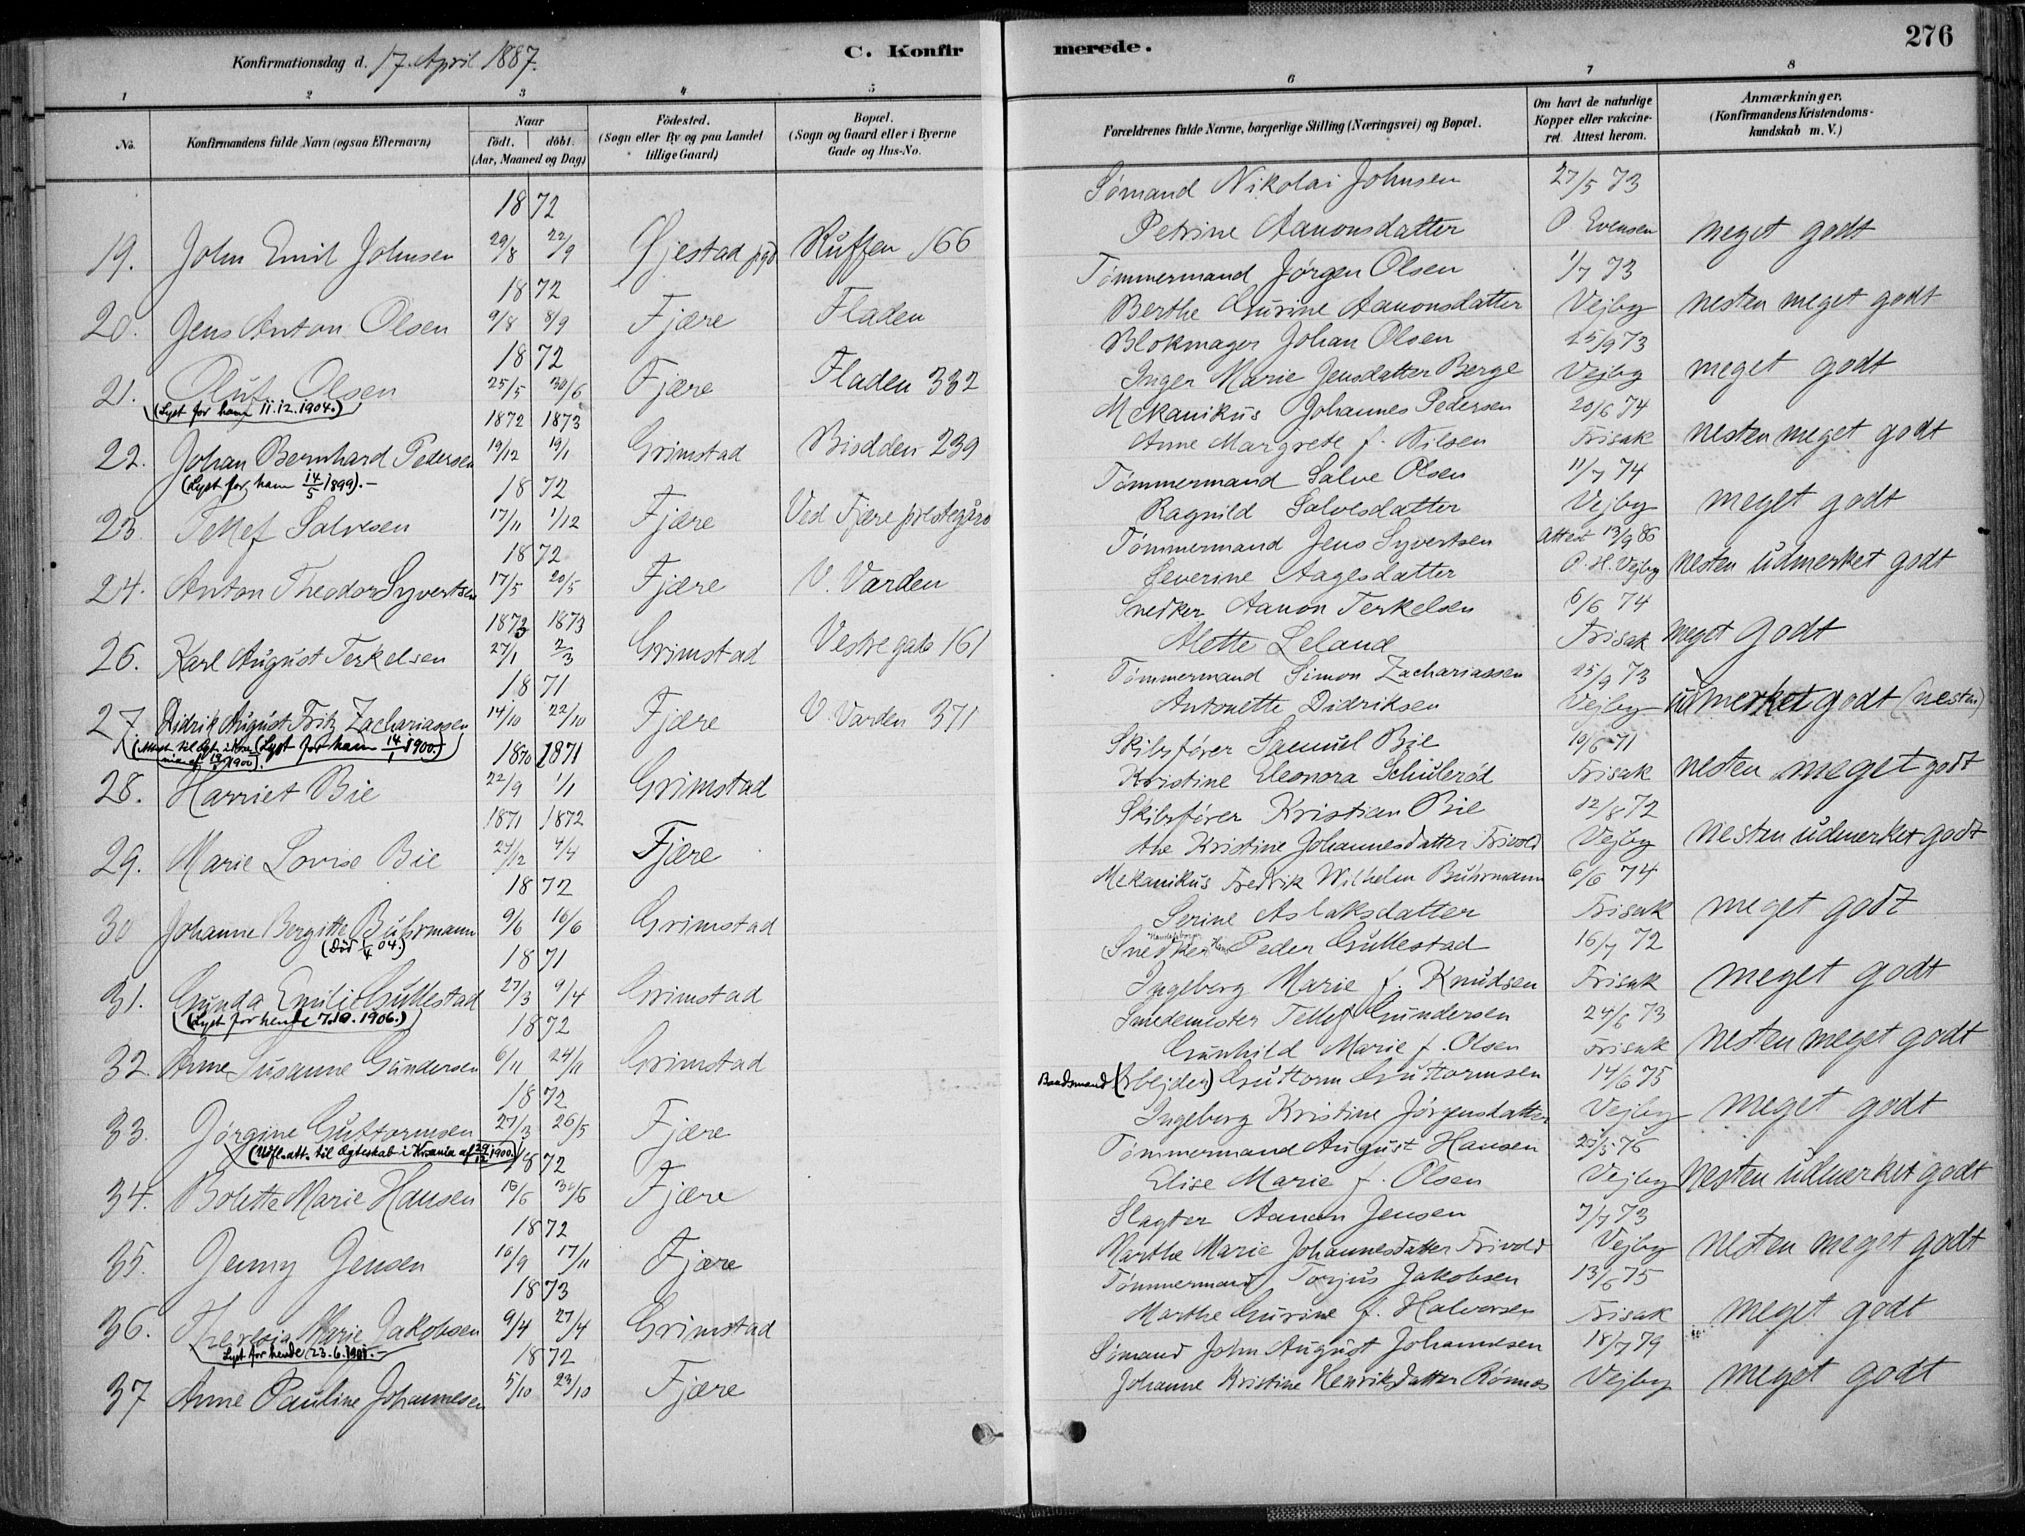 Konfirmationsdag d. 17. April 1887.
C. Konfirmerede.
276
1 2 3 4 5 6 7 8
No.
Konfirmandens fulde Navn (ogsaa Efternavn)
Naar
födt. döbt.
(Aar, Maaned og Dag)
Födested.
(Sogn eller By og paa Landet tillige Gaard)
Bopæl.
(Sogn og Gaard eller i Byerne Gade og Hus-No.
Forældrenes fulde Navne, borgerlige Stilling (Næringsvei) og Bopæl.
Om havt de naturlige Kopper eller vakcineret. Attest herom.
Anmærkninger.
(Konfirmandens Kristendomskundskab m. V.)
1872 Sømand Nikolai Johnsen 27/5 73
19. John Emil Johnsen 29/8 22/9 Øjestad pgd Ruffen 166 Petrine Aanonsdatter P Evensen meget godt
1872 Tømmermand Jørgen Olsen 1/7 73
20. Jens Anton Olsen 9/8 8/9 Fjære Fladen Berthe Gurine Aanonsdatter Vejby nesten meget godt
1872 Blokmager Johan Olsen 25/9 73
21. Oluf Olsen 25/5 30/6 Fjære Fladen 332 Inger Marie Jensdatter Berge Vejby meget godt
(Lyst for ham 11.12.1904.)
1872 1873 Mekanikus Johannes Pedersen 20/6 74
22. Johan Bernhard Pedersen 19/12 19/1 Grimstad Biodden 239 Anne Margrete f. Nilsen Frisak nesten meget godt
(Lyst for ham 14/5 1899).-
1872 Tømmermand Salve Olsen 11/7 74
23. Tellef Salvesen 17/11 1/12 Fjære Ved Fjære prestegård Ragnild Salvesdatter Vejby meget godt
1872 Tømmermand Jens Syvertsen Attest 13/9 86
24. Anton Theodor Syvertsen 17/5 20/5 Fjære V. Varden Severine Aagesdatter P. H. Vejby nesten udmerket godt
1873 1873 Snedker Aanon Terkelsen 6/6 74
26. Karl August Terkelsen 27/1 2/3 Grimstad Vestregate 161 Alette Leland Frisak meget godt
1871 Tømmermand Simon Zachariassen 25/9 73
27. Didrik August Fritz Zachariassen 14/10 22/10 Fjære V. Varden 371 Antonette Didriksen Vejby udmerket godt (nesten)
(Lyst for ham 14/1 1900.)
1870 1871 Skibsfører Samuel Bie 10/6 71
28. Harriet Bie 22/9 1/1 Grimstad Kristine Eleonora Schulerød Frisak nesten meget godt
1871 1872 Skibsfører Kristian Bie 12/8 72
29. Marie Lovise Bie 24/12 4/4 Fjære Ane Kristine Johannesdatter Frivold Vejby nesten udmerket godt
1872 Mekanikus Fredrik Wilhelm Buhrmann 6/6 74
30 Johanne Bergitte Buhrmann 9/6 16/6 Grimstad Serine Aslaksdatter Frisak meget godt
(Död 1/4 04)
1871 Snedker Hans Peder Gullestad 16/7 72
31. Gunda Emilie Gullestad 27/3 9/4 Grimstad Ingeborg Marie f. Knudsen Frisak meget godt
(Lyst for hende 7.10.1906.)
1872 Smedemester Tellef Gundersen 24/6 73
32. Anne Susanne Gundersen 6/11 24/11 Grimstad Gunhild Marie f. Olsen Frisak nesten meget godt
1872 Baadsmand (Arbejder) Guttorm Guttormsen 14/6 75
33. Jørgine Guttormsen 27/3 26/5 Fjære Ingeborg Kristine Jørgensdatter Vejby meget godt
(Udfl.att. til ægteskab i Krania af 29/12 1900.)
1872 Tømmermand August Hansen 25/5 76
34. Bolette Marie Hansen 10/6 30/6 Fjære Elise Marie f. Olsen Vejby nesten udmerket godt
1872 Slagter Aanon Jensen 7/7 73
35. Jenny Jensen 16/9 17/11 Fjære Marthe Marie Johannesdatter Frivold Vejby nesten meget godt
1873 Tømmermand Torjus Jakobsen 13/6 75
36. Marie Jakobsen 9/4 27/4 Grimstad Marthe Gurine f. Halversen Frisak meget godt
Lyst for hende 23.6.1901.-
1872 Sømand John August Johannesen 18/7 79
37 Anne Pauline Johannesen 5/10 23/10 Fjære Johanne Kristine Henriksdatter Rønnes Vejby meget godt